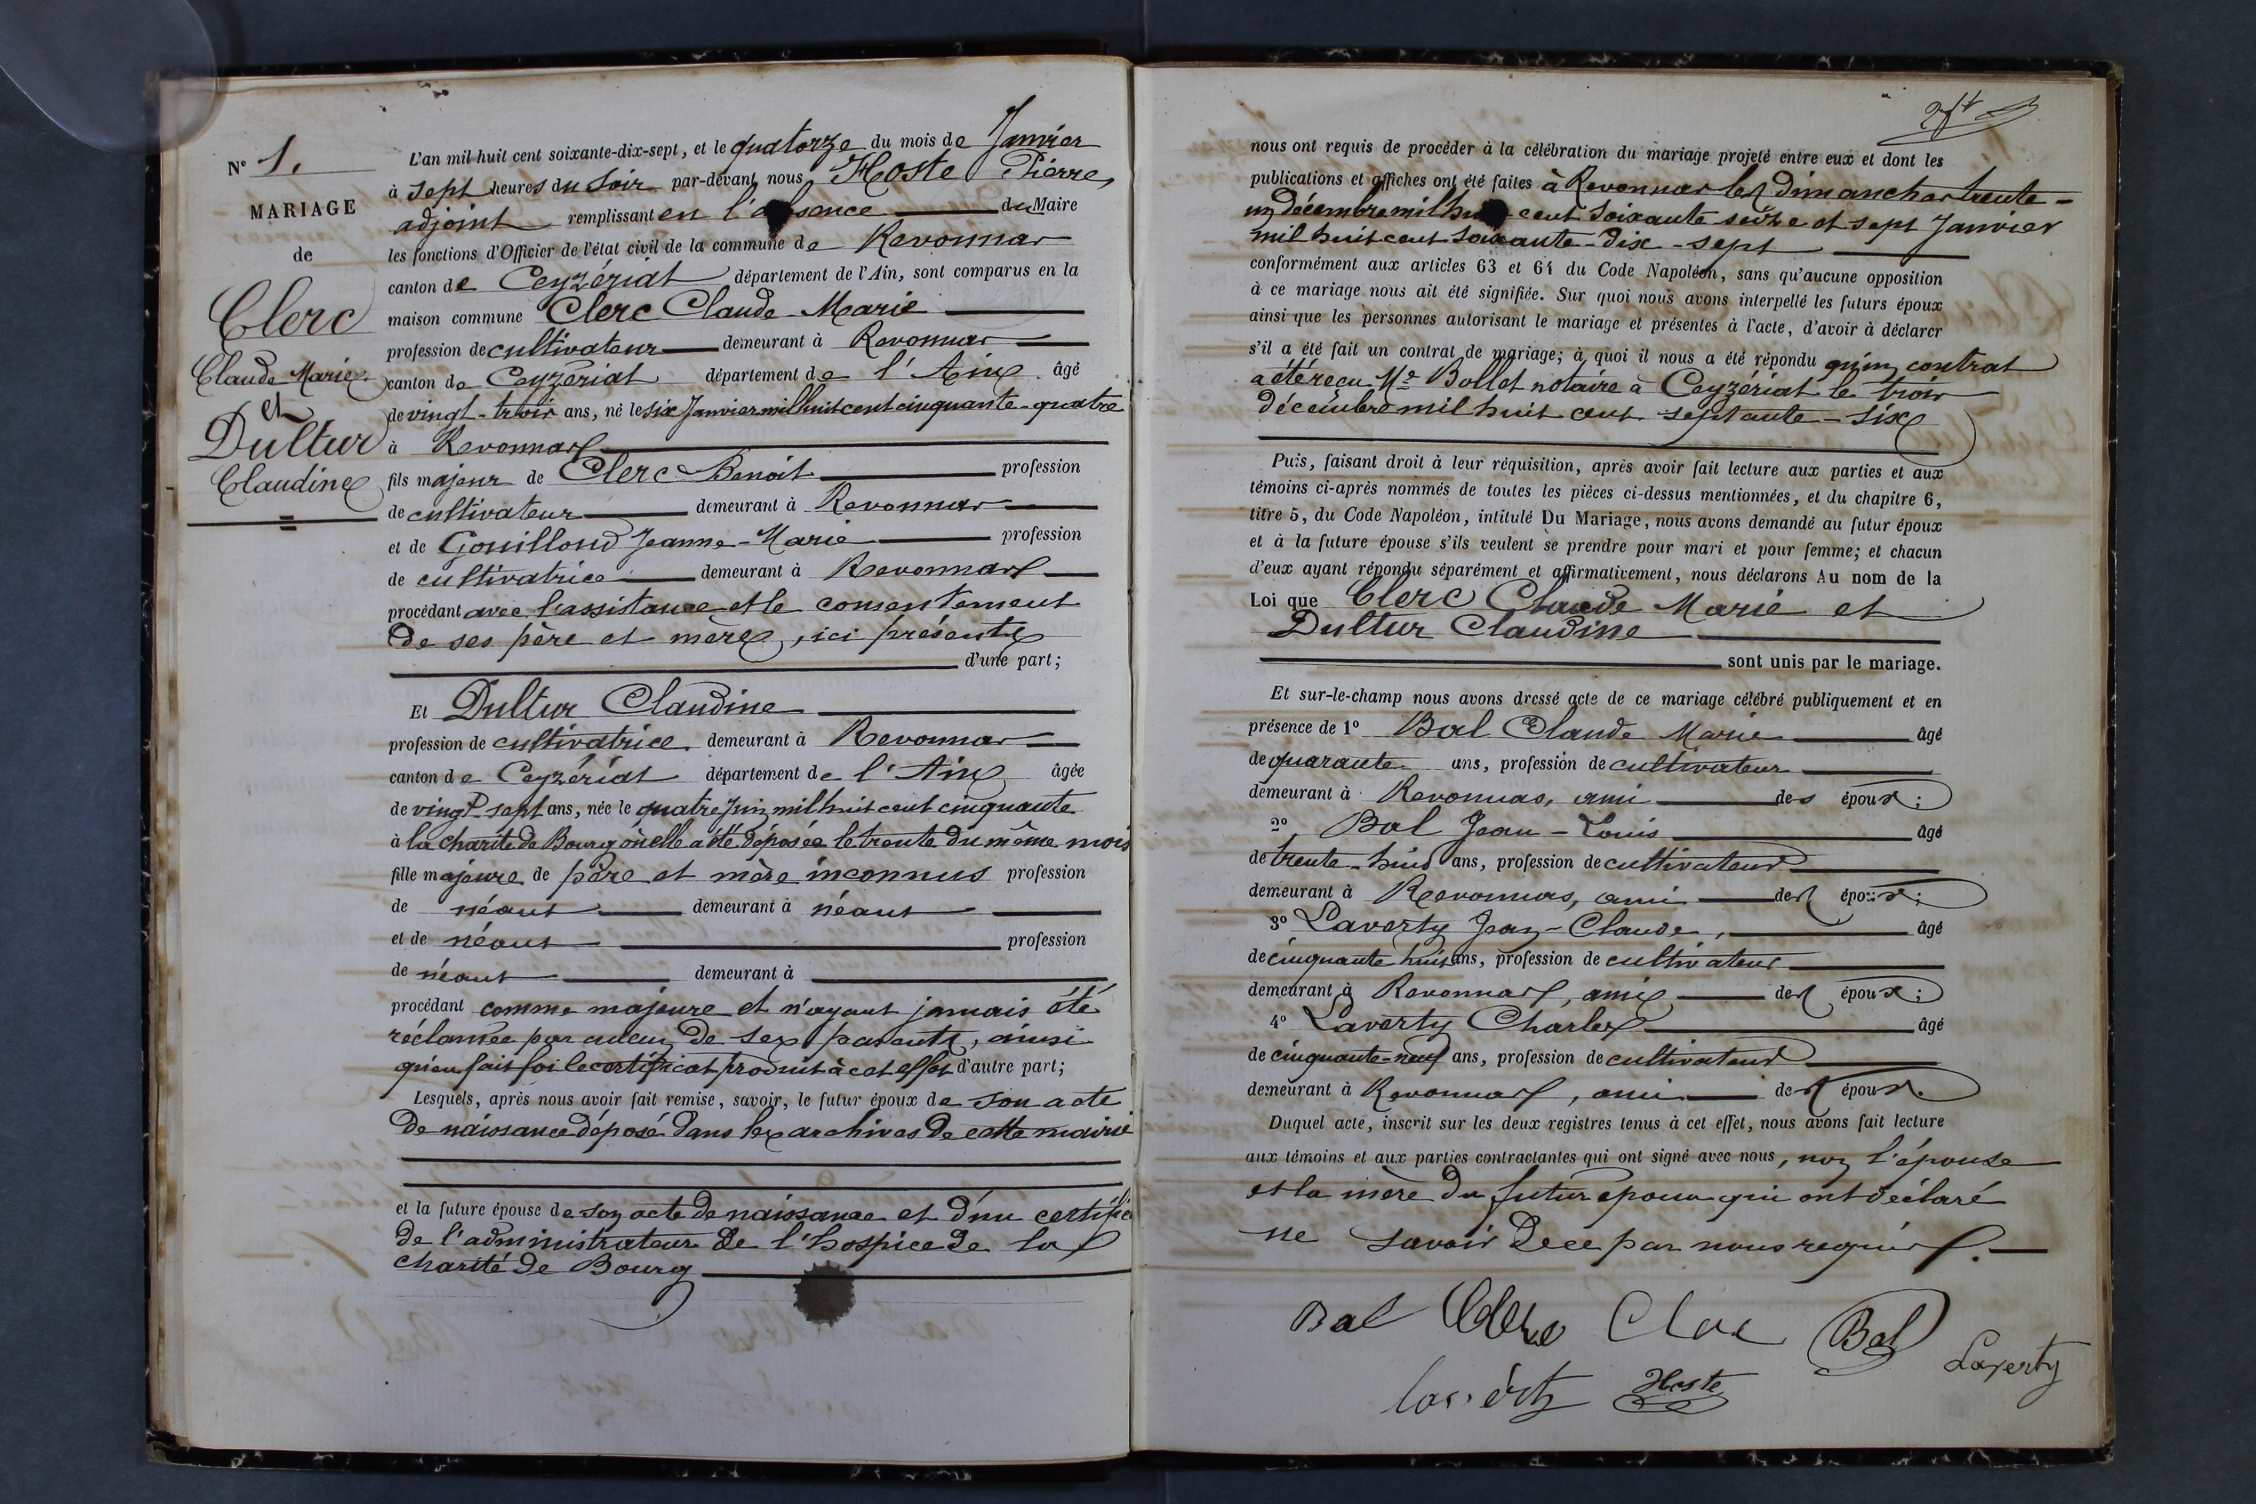 N° 1.
MARIAGE
de
Clerc
Claude Marie
et
Dultur
Claudine
L'an mil huit cent soixante-dix-sept, et le quatorze du mois de Janvier
à sept heures du soir par-devant nous Hoste Pierre,
adjoint remplissant en l'absence du Maire
les fonctions d'Officier de l'état civil de la commune de Revonnas
canton de Ceyzériat département de l'Ain, sont comparus en la
maison commune Clerc Claude Marie
profession de cultivateur demeurant à Revonnas
canton de Ceyzériat département de l'Ain âgé
de vingt-trois ans, né le six Janvier mil huit cent cinquante-quatre
à Revonnas
fils majeur de Clerc Benoit profession
de cultivateur demeurant à Revonnas
et de Gouilloud Jeanne-Marie profession
de cultivatrice demeurant à Revonnas
procédant avec l'assistance et le consentement
de ses père et mère, ici présents
d'une part;
Et Dultur Claudine
profession de cultivatrice demeurant à Revonnas
canton de Ceyzériat département de l'Ain âgée
de vingt-sept ans, née le quatre Juin mil huit cent cinquante
à la charité de Bourg où elle a été déposée le trente du même mois
fille majeure de père et mère inconnus profession
de néant demeurant à néant
et de néant profession
de néant demeurant à
procédant comme majeure et n'ayant jamais été
réclamée par aucun de ses parents, ainsi
qu'en fait foi le certificat produit à cet effet d'autre part;
Lesquels, après nous avoir fait remise, savoir, le futur époux de son acte
de naissance déposé dans les archives de cette mairie
et la future épouse de son acte de naissance et d'un certific
de l'administrateur de l'hospice de la
charité de Bourg
nous ont requis de procéder à la célébration du mariage projeté entre eux et dont les
publications et affiches ont été faites à Revonnas les dimanches trente-
un décembre mil huit cent soixante seize et sept Janvier
mil huit cent soixante-dix-sept
conformément aux articles 63 et 64 du Code Napoléon, sans qu'aucune opposition
à ce mariage nous ait été signifiée. Sur quoi nous avons interpellé les futurs époux
ainsi que les personnes autorisant le mariage et présentes à l'acte, d'avoir à déclarer
s'il a été fait un contrat de mariage; à quoi il nous a été répondu qu'un contrat
a été reçu Me Bollet notaire à Ceyzériat le trois
décembre mil huit cent septante-six
Puis, faisant droit à leur réquisition, après avoir fait lecture aux parties et aux
témoins ci-après nommés de toutes les pièces ci-dessus mentionnées, et du chapitre 6,
titre 5, du Code Napoléon, intitulé Du Mariage, nous avons demandé au futur époux
et à la future épouse s'ils veulent se prendre pour mari et pour femme; et chacun
d'eux ayant répondu séparément et affirmativement, nous déclarons Au nom de la
Loi que Clerc Claude Marie et
Dultur Claudine
sont unis par le mariage.
Et sur-le-champ nous avons dressé acte de ce mariage célébré publiquement et en
présence de 1° Bal Claude Marie âgé
de quarante ans, profession de cultivateur
demeurant à Revonnas, ami des époux;
2°, Bal Jean-Louis âgé
de trente-huit ans, profession de cultivateur
demeurant à Revonnas, ami des époux;
3° Laverty Jean-Claude, âgé
de cinquante huit ans, profession de cultivateur
demeurant à Revonnas, ami des époux;
4° Laverty Charles âgé
de cinquante-neuf ans, profession de cultivateur
demeurant à Revonnas, ami des époux.
Duquel acte, inscrit sur les deux registres tenus à cet effet, nous avons fait lecture
aux témoins et aux parties contractantes qui ont signé avec nous, non l'épouse
et la mère du futur époux qui ont déclaré
ne savoir de ce par nous requis.
Bal Clerc Clerc Bal
Laverty
Laverty Hoste